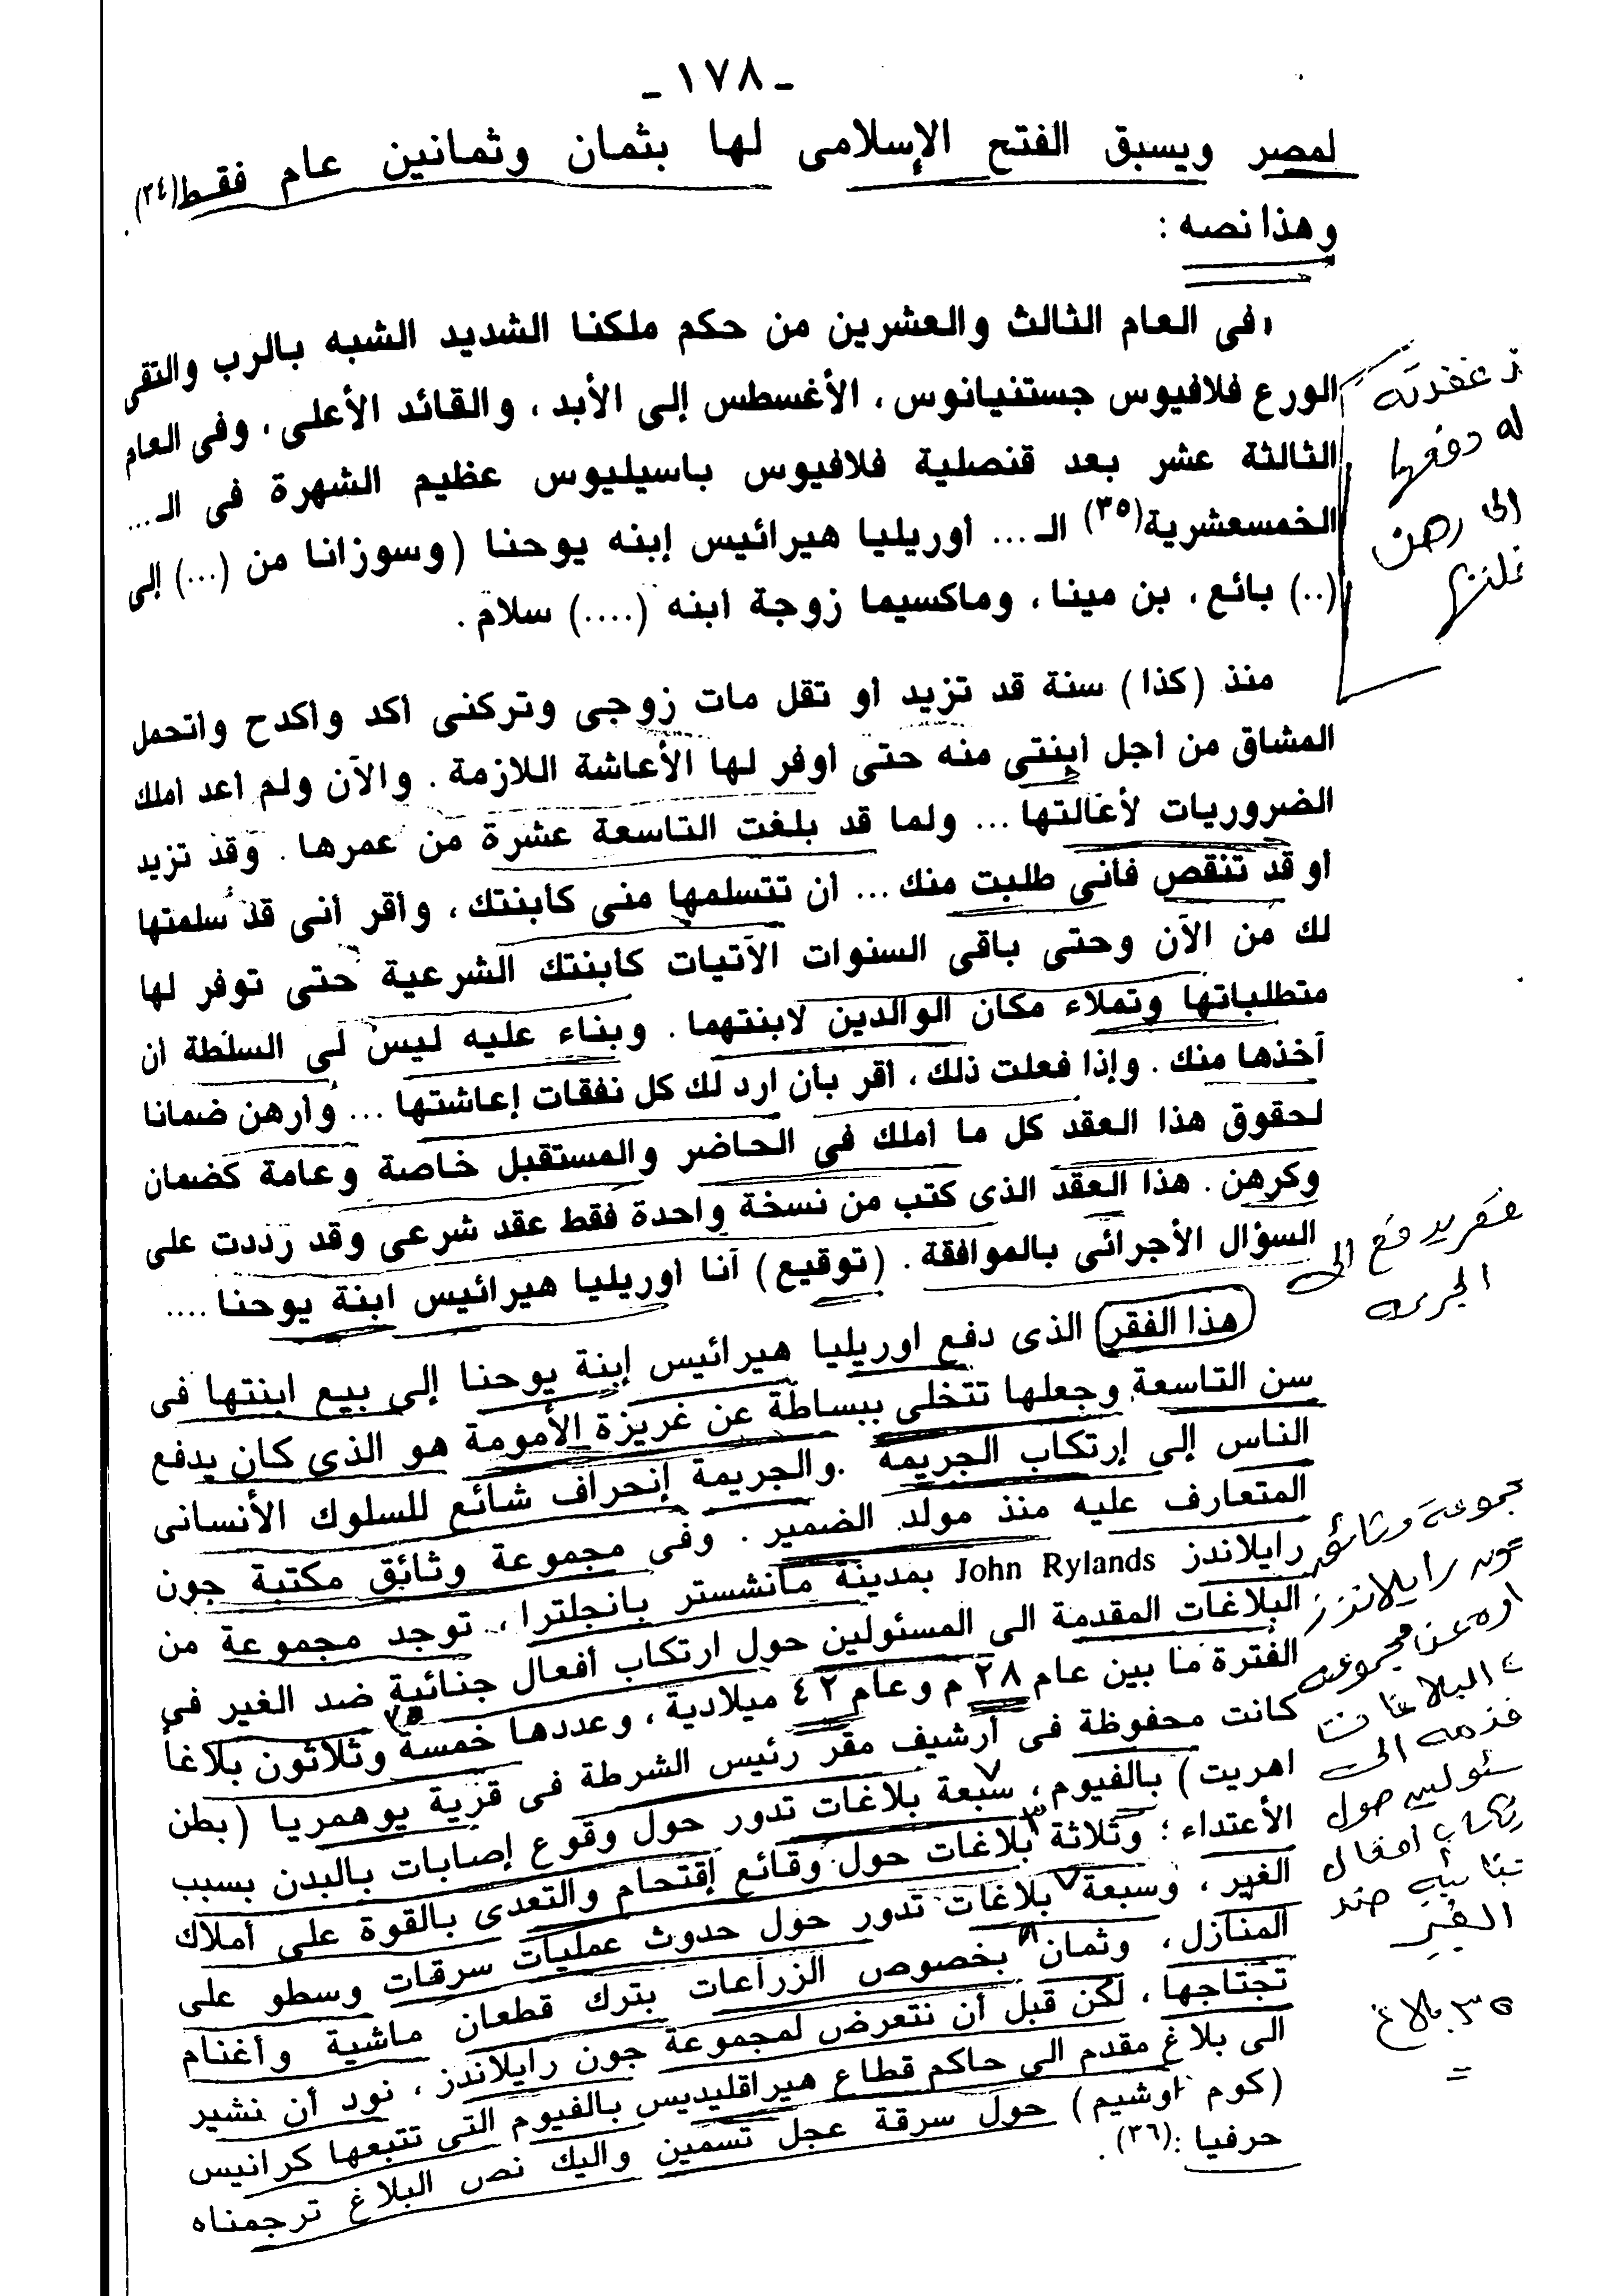 ـ ١٧٨ ـ
لمصر ويسبق الفتح الإسلامى لها بثمان وثمانين عام فقط(٣٤)
وهذا نصه :
«فى العام الثالث والعشرين من حكم ملكنا الشديد الشبه بالرب والتقى
الورع فلافيوس جستنيانوس، الأغسطس إلى الأبد، والقائد الأعلى، وفى العام
الثالثة عشر بعد قنصلية فلافيوس باسيليوس عظيم الشهرة فى الـ ...
الخمسعشرية(٣٥) الـ ... أوريليا هيرائيس إبنه يوحنا (وسوزانا من (...) إلى
(..) بائع، بن مينا، وماكسيما زوجة ابنه (....) سلام .
منذ (كذا) سنة قد تزيد أو تقل مات زوجى وتركنى أكد وأكدح وأتحمل
المشاق من أجل أبنتى منه حتى أوفر لها الأعاشة اللازمة . والآن ولم أعد أملك
الضروريات لأعالتها ... ولما قد بلغت التاسعة عشرة من عمرها . وقد تزيد
أو قد تنقص فأنى طلبت منك ... أن تتسلمها منى كأبنتك، وأقر أنى قد سلمتها
لك من الآن وحتى باقى السنوات الآتيات كأبنتك الشرعية حتى توفر لها
متطلباتها وتملاء مكان الوالدين لابنتهما . وبناء عليه ليس لى السلطة أن
آخذها منك . وإذا فعلت ذلك، أقر بأن أرد لك كل نفقات إعاشتها ... وأرهن ضمانا
لحقوق هذا العقد كل ما أملك فى الحاضر والمستقبل خاصة وعامة كضمان
وكرهن . هذا العقد الذى كتب من نسخة واحدة فقط عقد شرعى وقد رددت على
السؤال الأجرائى بالموافقة . (توقيع) أنا أوريليا هيرائيس ابنة يوحنا ....
هذا الفقر الذى دفع أوريليا هيرائيس إبنة يوحنا إلى بيع ابنتها فى
سن التاسعة وجعلها تتخلى ببساطة عن غريزة الأمومة هو الذى كان يدفع
الناس إلى إرتكاب الجريمة . والجريمة إنحراف شائع للسلوك الأنسانى
المتعارف عليه منذ مولد الضمير . وفى مجموعة وثائق مكتبة جون
رايلاندز John Rylands بمدينة مانشستر بانجلترا، توجد مجموعة من
البلاغات المقدمة الى المسئولين حول ارتكاب أفعال جنائية ضد الغير فى
الفترة ما بين عام ٢٨ م وعام ٤٢ ميلادية، وعددها خمسة وثلاثون بلاغاً
كانت محفوظة فى أرشيف مقر رئيس الشرطة فى قرية يوهمريا (بطن
اهريت) بالفيوم، سبعة بلاغات تدور حول وقوع إصابات بالبدن بسبب
الأعتداء ؛ وثلاثة بلاغات حول وقائع إقتحام والتعدى بالقوة على أملاك
الغير، وسبعة بلاغات تدور حول حدوث عمليات سرقات وسطو على
المنازل، وثمان بخصوص الزراعات بترك قطعان ماشية وأغنام
تجتاجها، لكن قبل أن نتعرض لمجموعة جون رايلاندز، نود أن نشير
الى بلاغ مقدم الى حاكم قطاع هيراقليديس بالفيوم التى تتبعها كرانيس
(كوم أوشيم) حول سرقة عجل تسمين واليك نص البلاغ ترجمناه
حرفيا :(٣٦) .
له دفعها
الى رهن
فقر يدفع الى
الجريمه
مجموعة وثائق
جون رايلاندز
البلاغات
حول
أفعال
ضد
الغير
٣٥ بلاغ